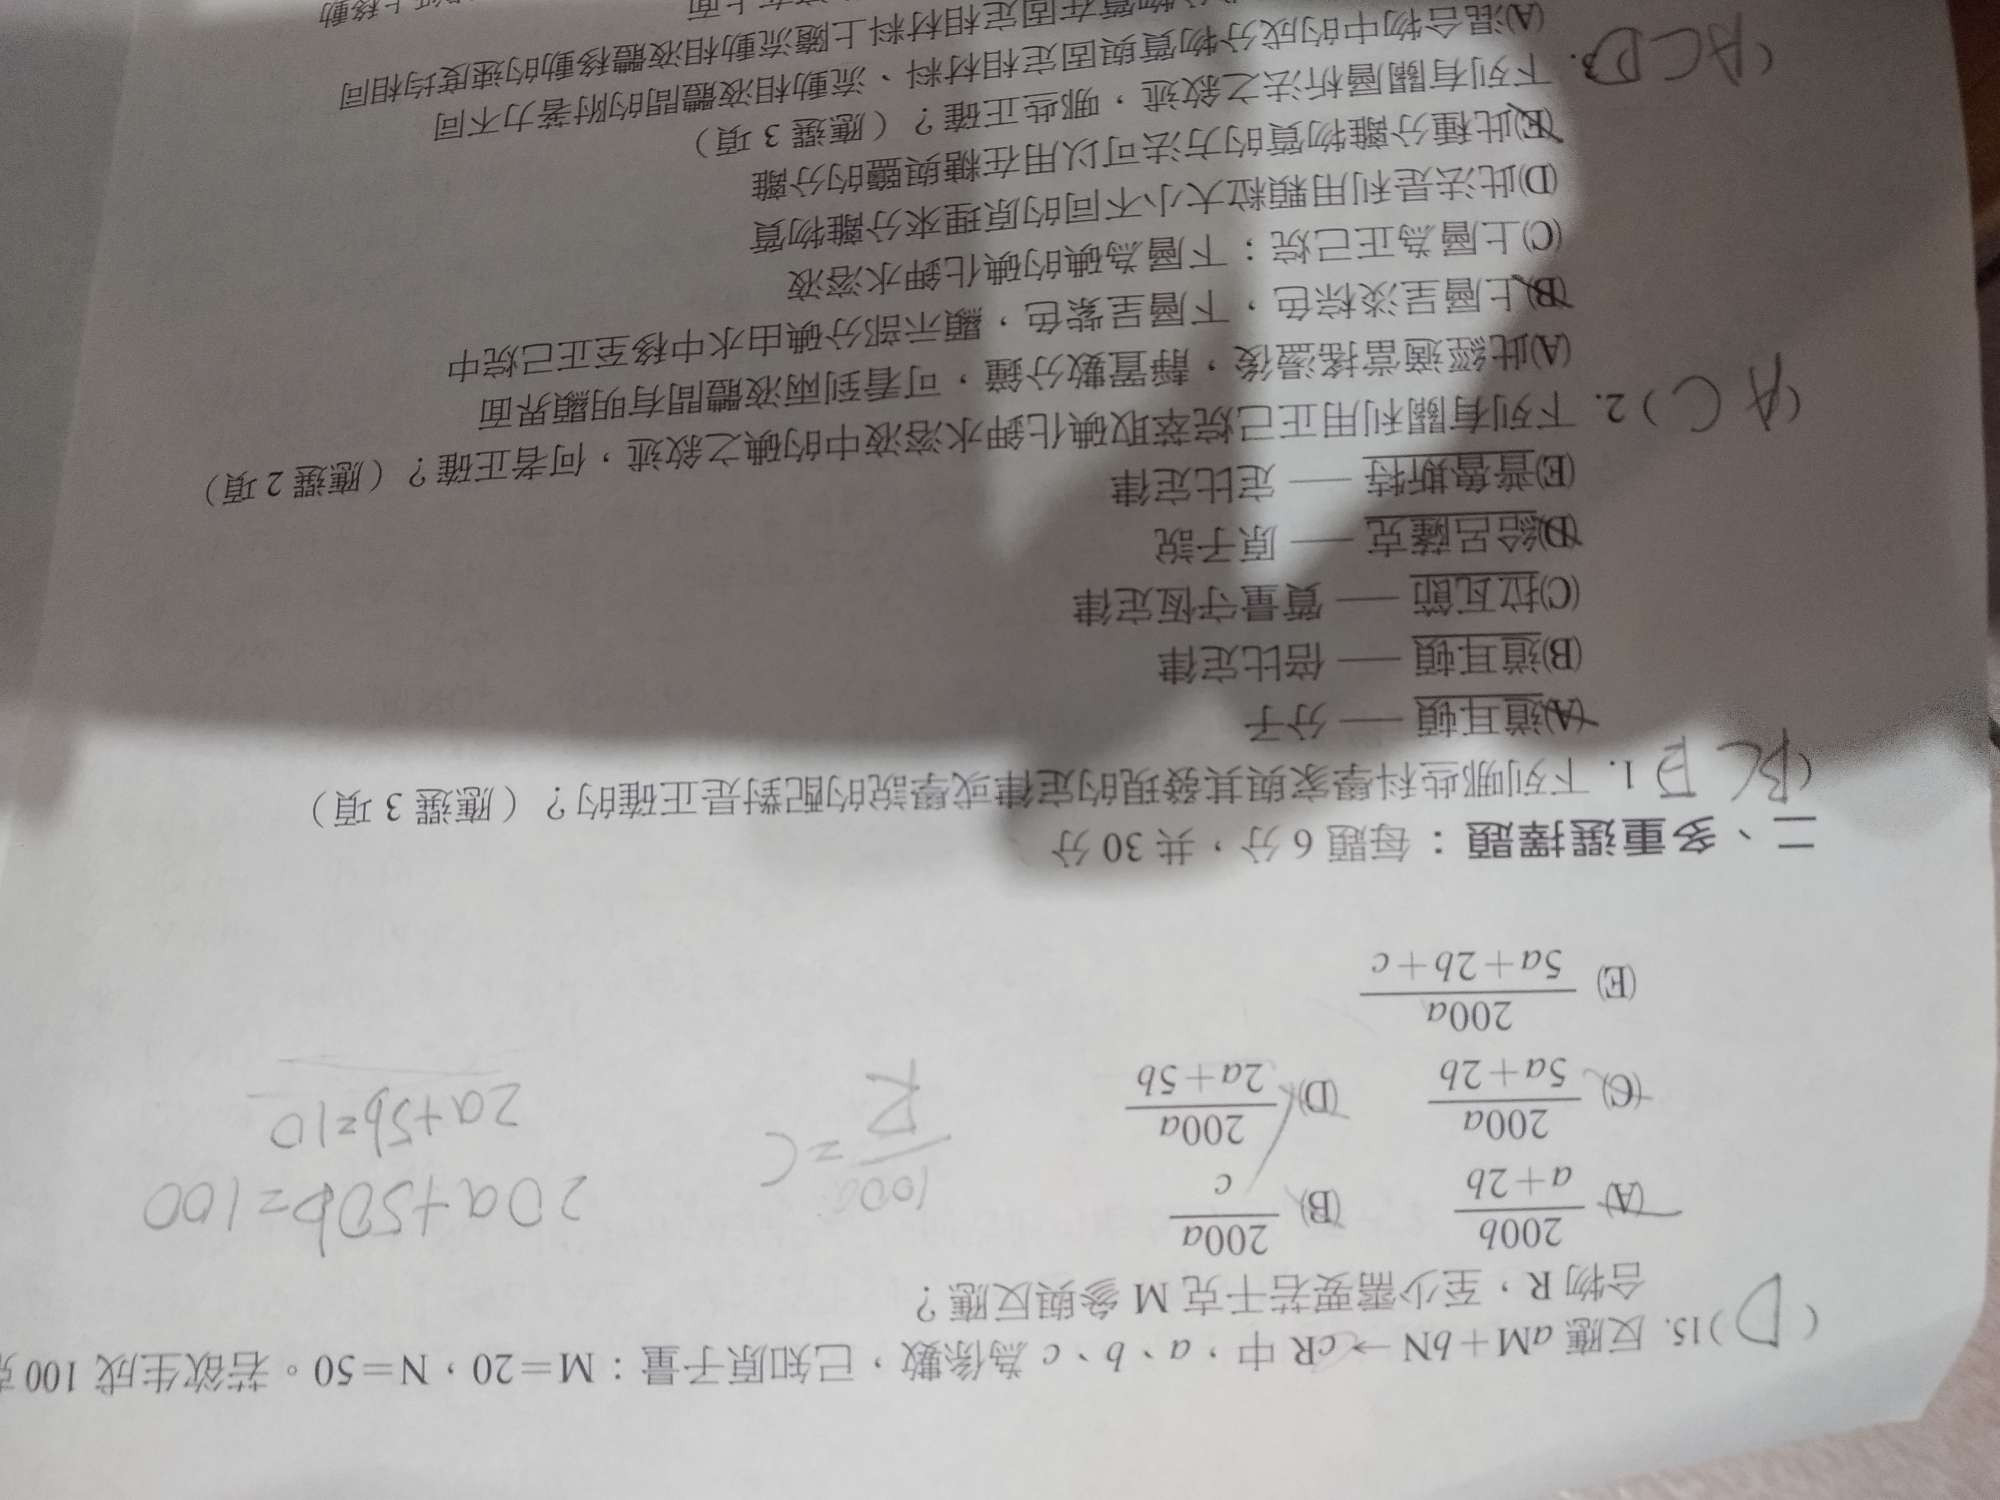 (D)15. 反應 aM+bN→cR 中，a、b、c 為係數，已知原子量：M=20，N=50。若欲生成 100 克
合物 R，至少需要若干克 M 參與反應？
(A) 200b/a+2b (B) 200a/c
(C) 200a/5a+2b (D) 200a/2a+5b
(E) 200a/5a+2b+c
=C
R
20a+50b=100
2a+5b=10
二、多重選擇題：每題 6 分，共 30 分
(BCE)1. 下列哪些科學家與其發現的定律或學說的配對是正確的？（應選 3 項）
(A)道耳頓 — 分子
(B)道耳頓 — 倍比定律
(C)拉瓦節 — 質量守恆定律
(D)給呂薩克 — 原子說
(E)普魯斯特 — 定比定律
(AC)2. 下列有關利用正己烷萃取碘化鉀水溶液中的碘之敘述，何者正確？（應選 2 項）
(A)此經適當搖盪後，靜置數分鐘，可看到兩液體間有明顯界面
(B)上層呈淡棕色，下層呈紫色，顯示部分碘由水中移至正己烷中
(C)上層為正己烷；下層為碘的碘化鉀水溶液
(D)此法是利用顆粒大小不同的原理來分離物質
(E)此種分離物質的方法可以用在糖與鹽的分離
(ACD3. 下列有關層析法之敘述，哪些正確？（應選 3 項）
(A)混合物中的成分物質與固定相材料、流動相液體間的附著力不同
物質在固定相材料上隨流動相液體移動的速度均相同